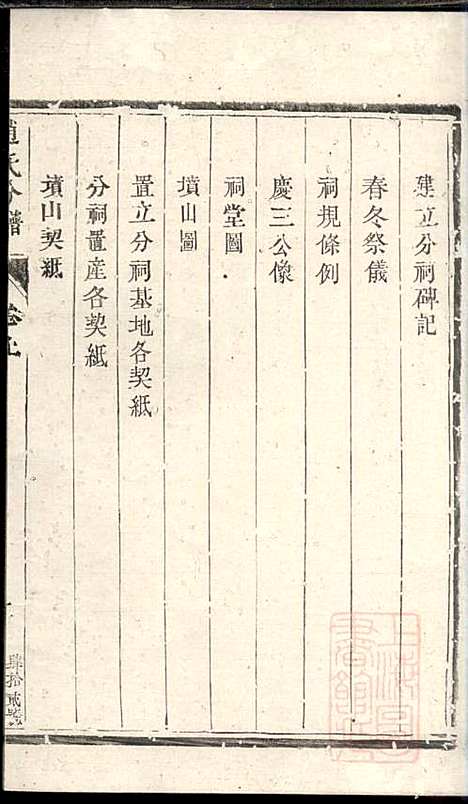 建立分祠碑記
春冬祭儀
祠規條例
慶三公像
祠堂圖
墳山圖
置立分祠基地各契紙
分祠置產各契紙
墳山契紙
氏分譜
卷上
肆拾貳號
上海圖書館藏